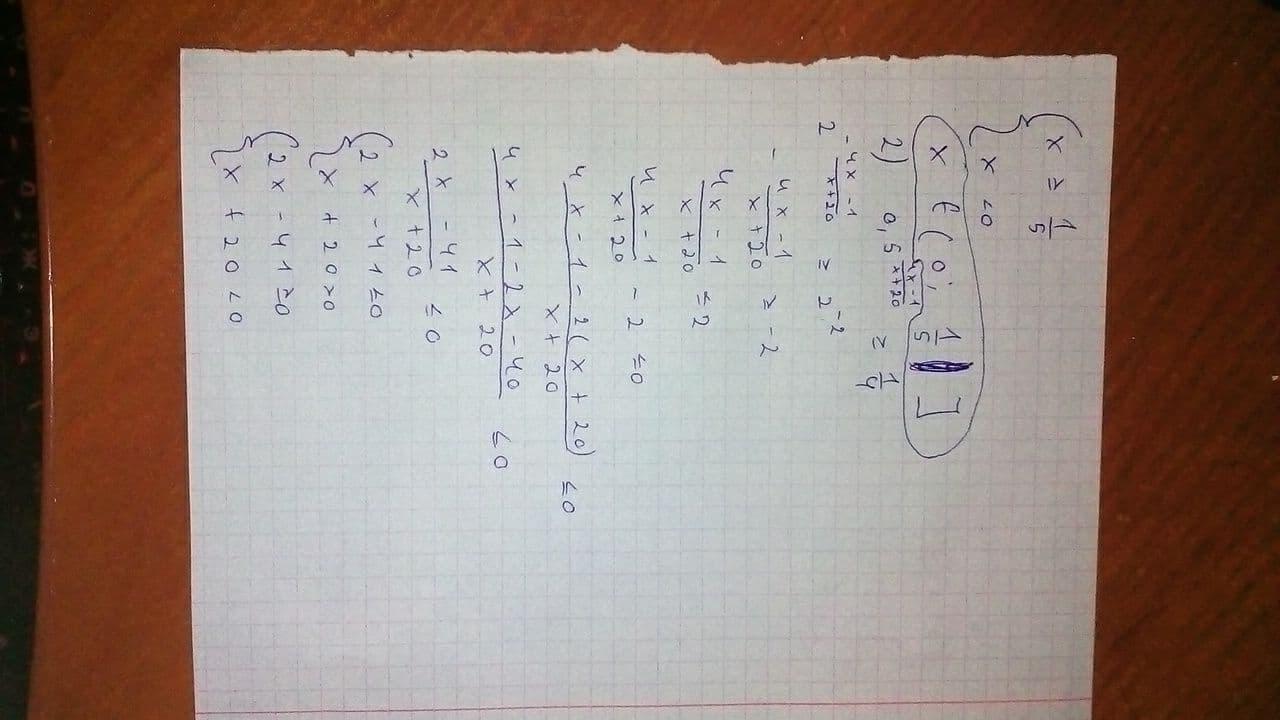 { x ≥ 1/5
x < 0
x ∈ (0; 1/5 ]
2) 0,5^((4x-1)/(x+20)) ≥ 1/4
2^(-(4x-1)/(x+20)) ≥ 2^(-2)
- (4x-1)/(x+20) ≥ -2
(4x-1)/(x+20) ≤ 2
(4x-1)/(x+20) - 2 ≤ 0
(4x-1-2(x+20))/(x+20) ≤ 0
(4x-1-2x-40)/(x+20) ≤ 0
(2x-41)/(x+20) ≤ 0
{ 2x-41 ≤ 0
x+20 > 0
{ 2x-41 ≥ 0
x+20 < 0